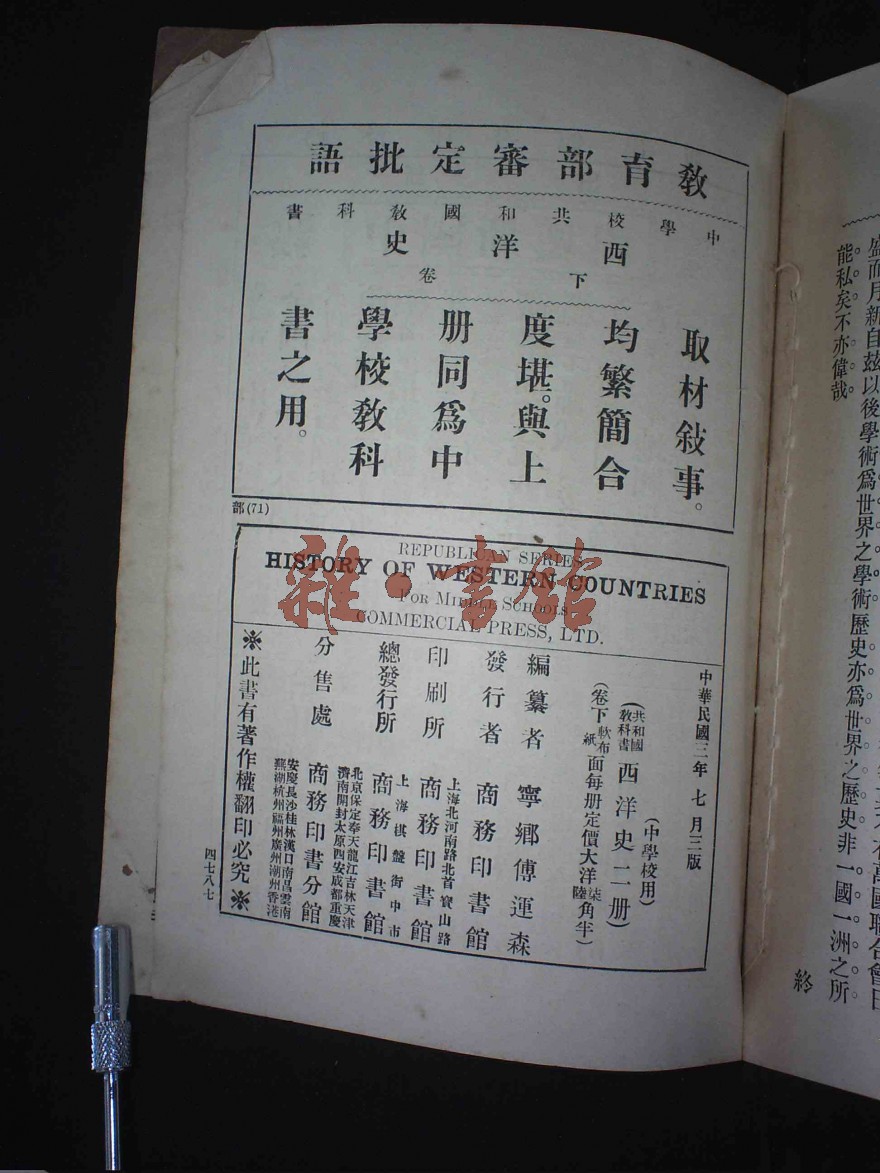 教育部審定批語
中學校共和國教科書
西洋史
下卷
取材敍事。
均繁簡合
度堪。與上
册同爲中
學校敎科
書之用。
部(71)
REPUBLICAN SERIES
HISTORY OF WESTERN COUNTRIES
FOR MIDDLE SCHOOLS
COMMERCIAL PRESS, LTD.
中華民國三年七月三版
(中學校用)
(共和國敎科書西洋史二册)
(卷下軟布紙面每册定價大洋柒陸角半)
編纂者 寧鄉傅運森
發行者 商務印書館
上海北河南路北首寶山路
印刷所 商務印書館
上海棋盤街中市
總發行所 商務印書館
北京保定奉天龍江吉林天津
濟南開封太原西安成都重慶
分售處 商務印書分館
安慶長沙桂林漢口南昌雲南
蕪湖杭州福州廣州潮州香港
※此書有著作權翻印必究※
四七八七
雜·書館
萬國聯合會日
盛而月新自茲以後學術爲世界之學術歷史亦爲世界之歷史非一國一洲之所
能私矣不亦偉哉
終